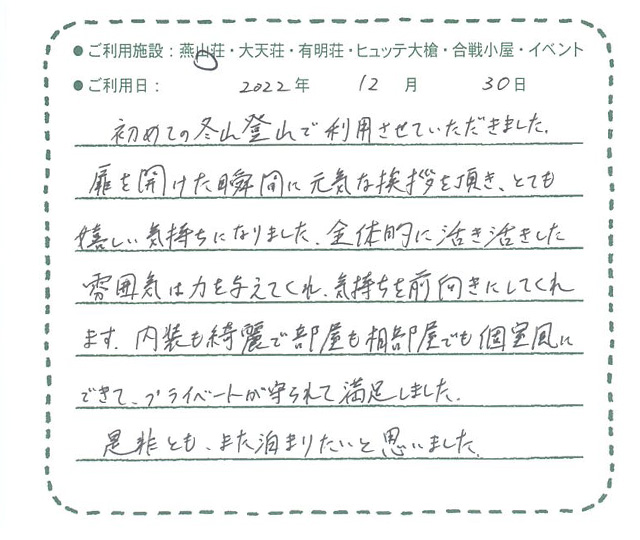 ●ご利用施設：燕山荘・大天荘・有明荘・ヒュッテ大槍・合戦小屋・イベント
●ご利用日： 2022年 12月 30日
初めての冬山登山で利用させていただきました。
扉を開けた瞬間に元気な挨拶を頂き、とても
嬉しい気持ちになりました。全体的に活き活きした
雰囲気は力を与えてくれ、気持ちを前向きにしてくれ
ます。内装も綺麗で部屋も相部屋でも個室風に
できて、プライベートが守られて満足しました。
是非とも、また泊まりたいと思いました。